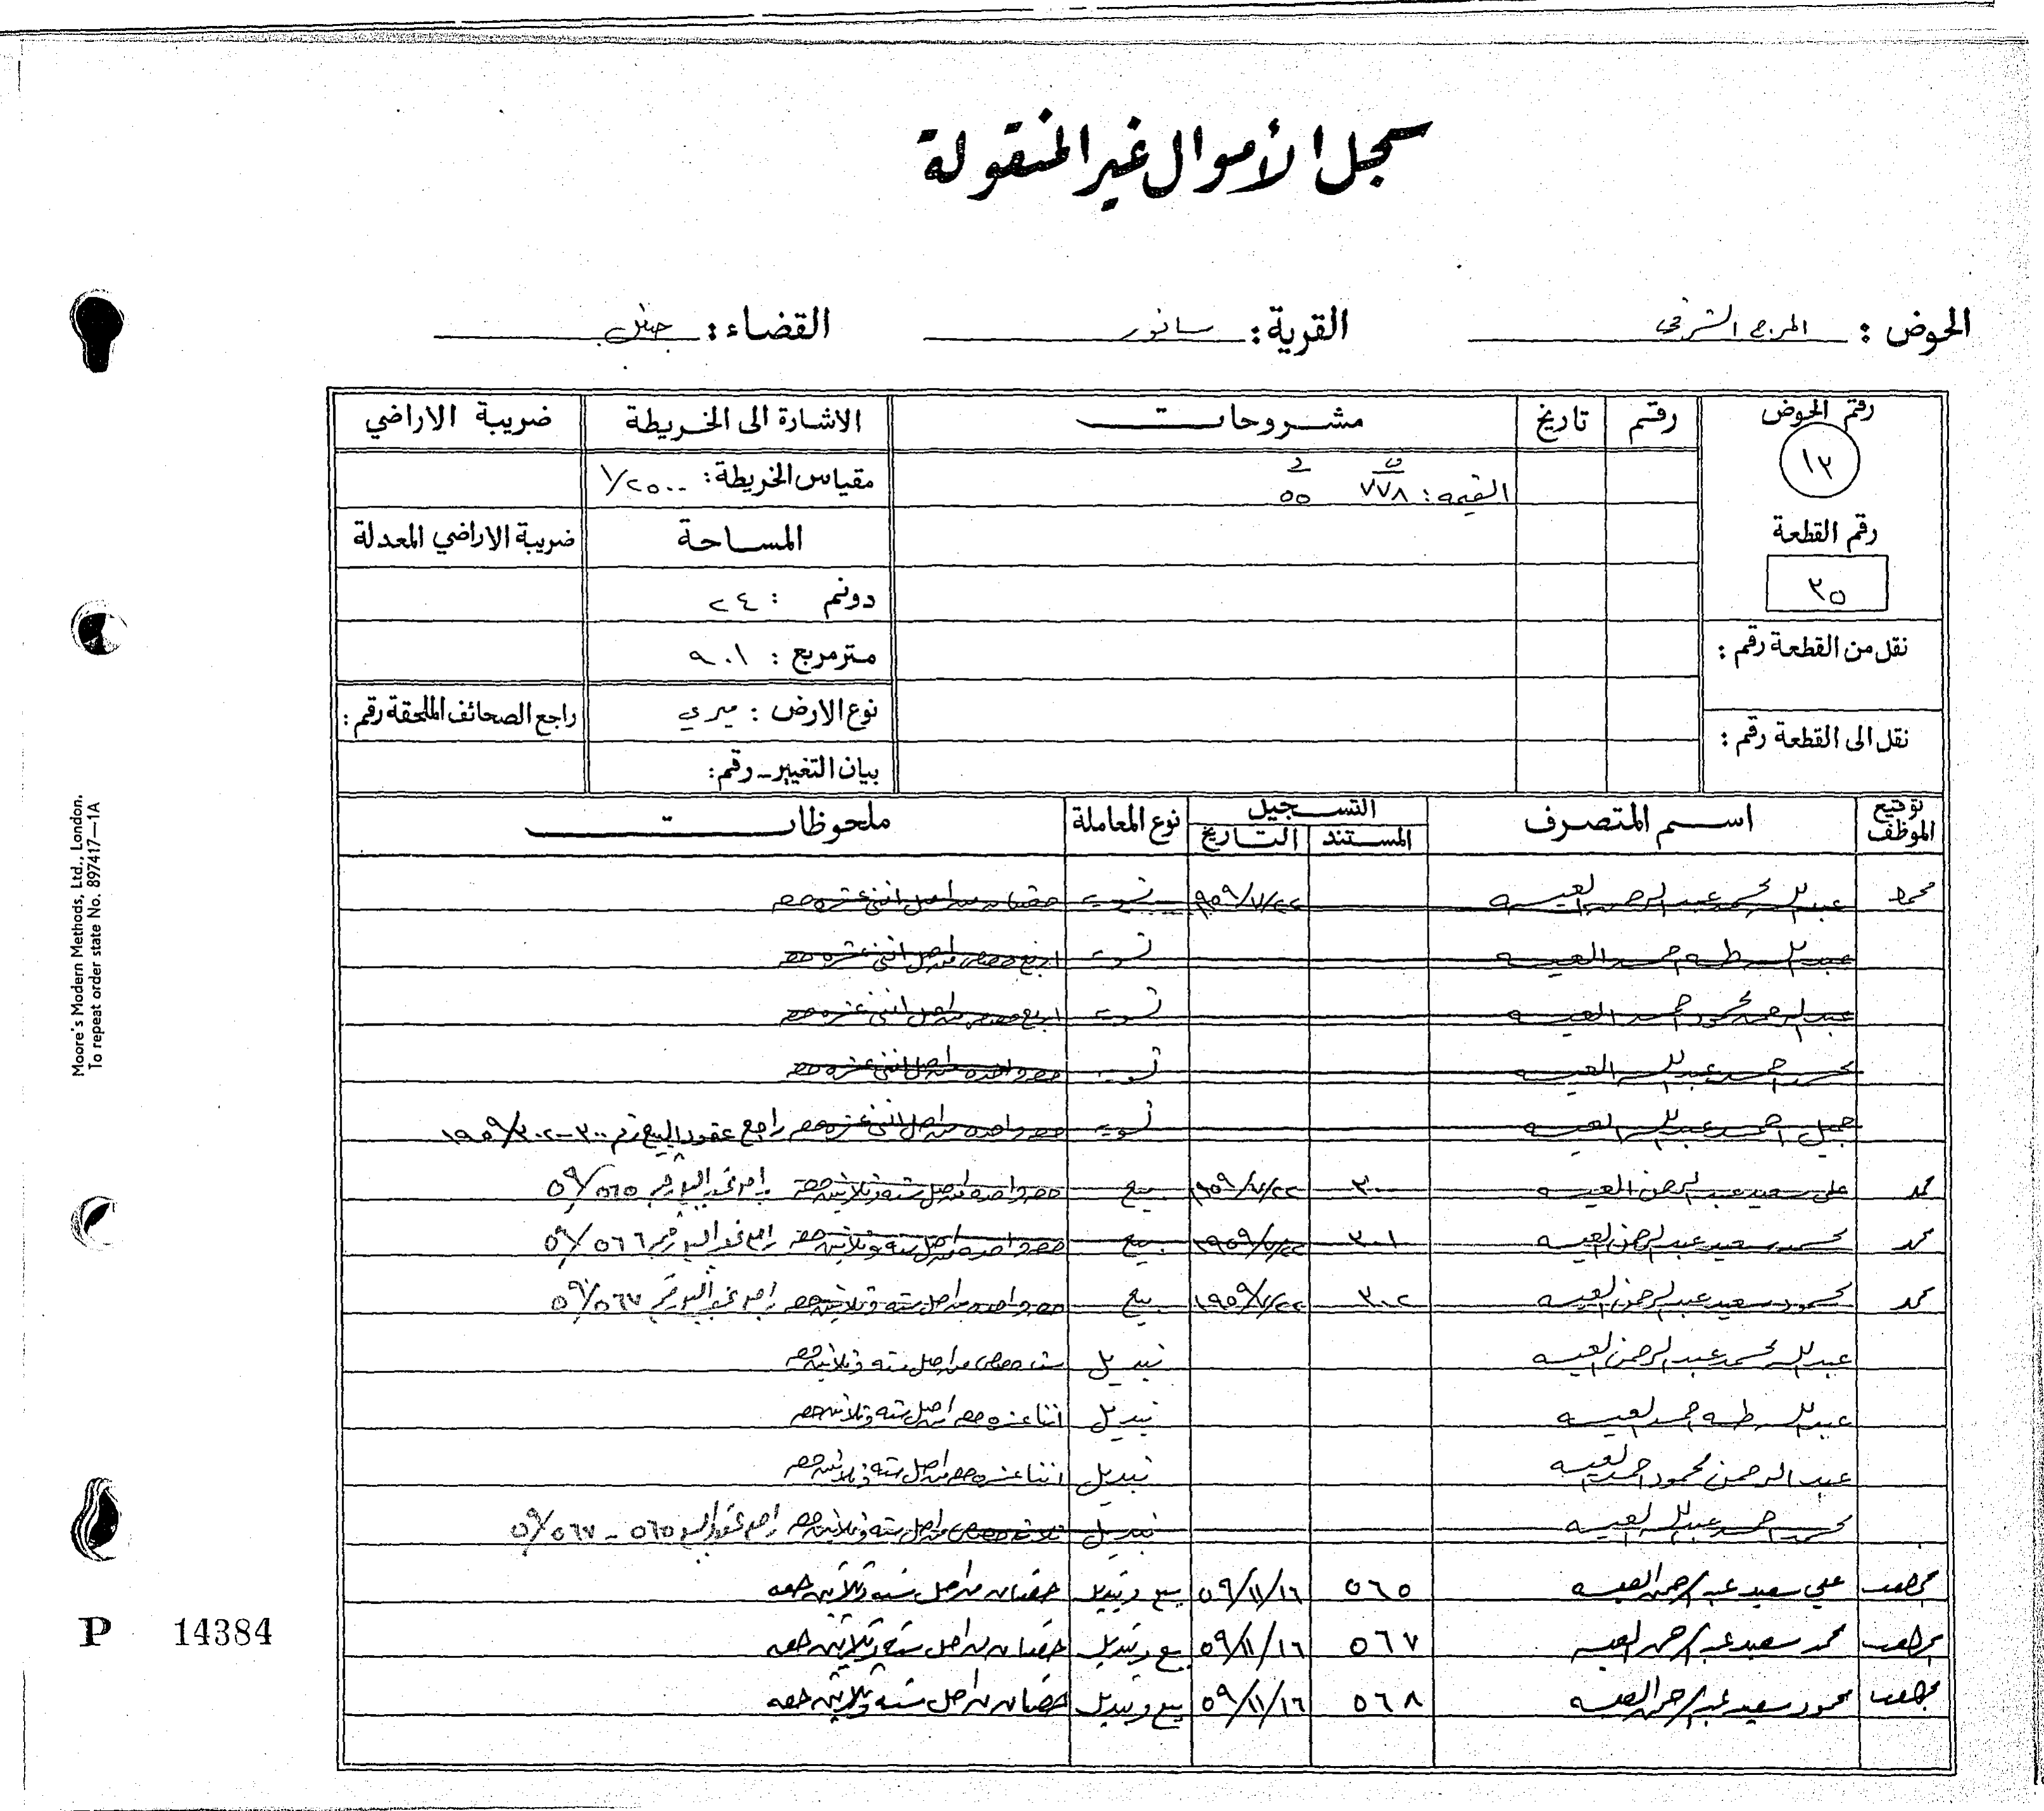 سجل الأموال غير المنقولة
الحوض : المرج الشرقي القرية : سانور القضاء : جنين
رقم الحوض رقم تاريخ مشروحات الاشارة الى الخريطة ضريبة الاراضي
١٣
القيمه : ٧٧٨ ٥٥ مقياس الخريطة : ١/٢٥٠٠
رقم القطعة المساحة ضريبة الاراضي المعدلة
٣٥ دونم : ٢٤
نقل من القطعة رقم : متر مربع : ٩٠١
نوع الارض : ميري راجع الصحائف الملحقة رقم :
نقل الى القطعة رقم : بيان التغيير - رقم :
توقيع الموظف اسم المتصرف التسجيل نوع المعاملة ملحوظات
المستند التاريخ
عبدالله محمد عبد الرحمن العيسه تسويه حصتان من اصل اثنى عشره حصه
عبدالله طه احمد العيسه تسويه اربع حصص من اصل اثنى عشره حصه
عبد الرحمن محمود احمد العيسه تسويه اربع حصص من اصل اثنى عشره حصه
محمد احمد عبدالله العيسه تسويه حصه واحده من اصل اثنى عشره حصه
جميل احمد عبدالله العيسه تسويه حصه واحده من اصل اثنى عشره حصه راجع عقود البيع رقم ٣٠٠-٣٠٢/١٩٥٩
محمد علي سعيد عبد الرحمن العيسه ٣٠٠ بيع حصه واحده من اصل سته وثلاثين حصه راجع عقد البيع رقم ٥٦٥/٥٩
محمد محمد سعيد عبد الرحمن العيسه ٣٠١ بيع حصه واحده من اصل سته وثلاثين حصه راجع عقد البيع رقم ٥٦٦/٥٩
محمد محمود سعيد عبد الرحمن العيسه ٣٠٢ بيع حصه واحده من اصل سته وثلاثين حصه راجع عقد البيع رقم ٥٦٧/٥٩
عبدالله محمد عبد الرحمن العيسه تبديل ست حصص من اصل سته وثلاثين حصه
عبدالله طه احمد العيسه تبديل اثنا عشره حصه من اصل سته وثلاثين حصه
عبد الرحمن محمود احمد العيسه تبديل اثنا عشره حصه من اصل سته وثلاثين حصه
محمد احمد عبدالله العيسه تبديل ثلاث حصص من اصل سته وثلاثين حصه راجع عقود البيع ٥٦٥ - ٥٦٧/٥٩
علي سعيد عبد الرحمن العيسه ٥٦٥ ١٦/١١/٥٩ بيع وتبديل حصتان من اصل سته وثلاثين حصه
محمد سعيد عبد الرحمن العيسه ٥٦٧ ١٦/١١/٥٩ بيع وتبديل حصتان من اصل سته وثلاثين حصه
محمود سعيد عبد الرحمن العيسه ٥٦٨ ١٦/١١/٥٩ بيع وتبديل حصتان من اصل سته وثلاثين حصه
Moore's Modern Methods, Ltd., London.
To repeat order state No. 897417—1A
P 14384